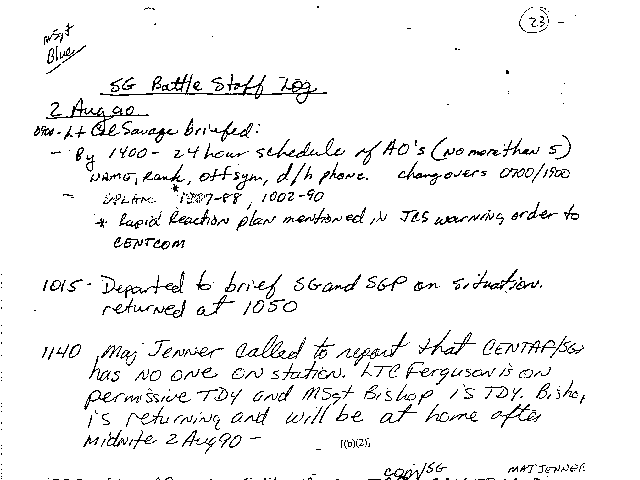 23
MSgt
Blue
SG Battle Staff Log
2 Aug 90
0900 - Lt Col Savage briefed:
- By 1400 - 24 hour schedule of AO's (no more than 5)
name, rank, off sym, d/h phone. changeovers 0700/1900
- OPLAN *1307-88, 1002-90
* Rapid Reaction plan mentioned in JCS warning order to
CENTCOM
1015 - Departed to brief SG and SGP on situation.
returned at 1050
1140 Maj Jenner called to report that CENTAF/SG
has no one on station. LTC Ferguson is on
permissive TDY and MSgt Bishop, is TDY. Bishop
is returning and will be at home after
midnite 2 Aug 90 -
[(b)(2)]
com/SG MAJ JENNER